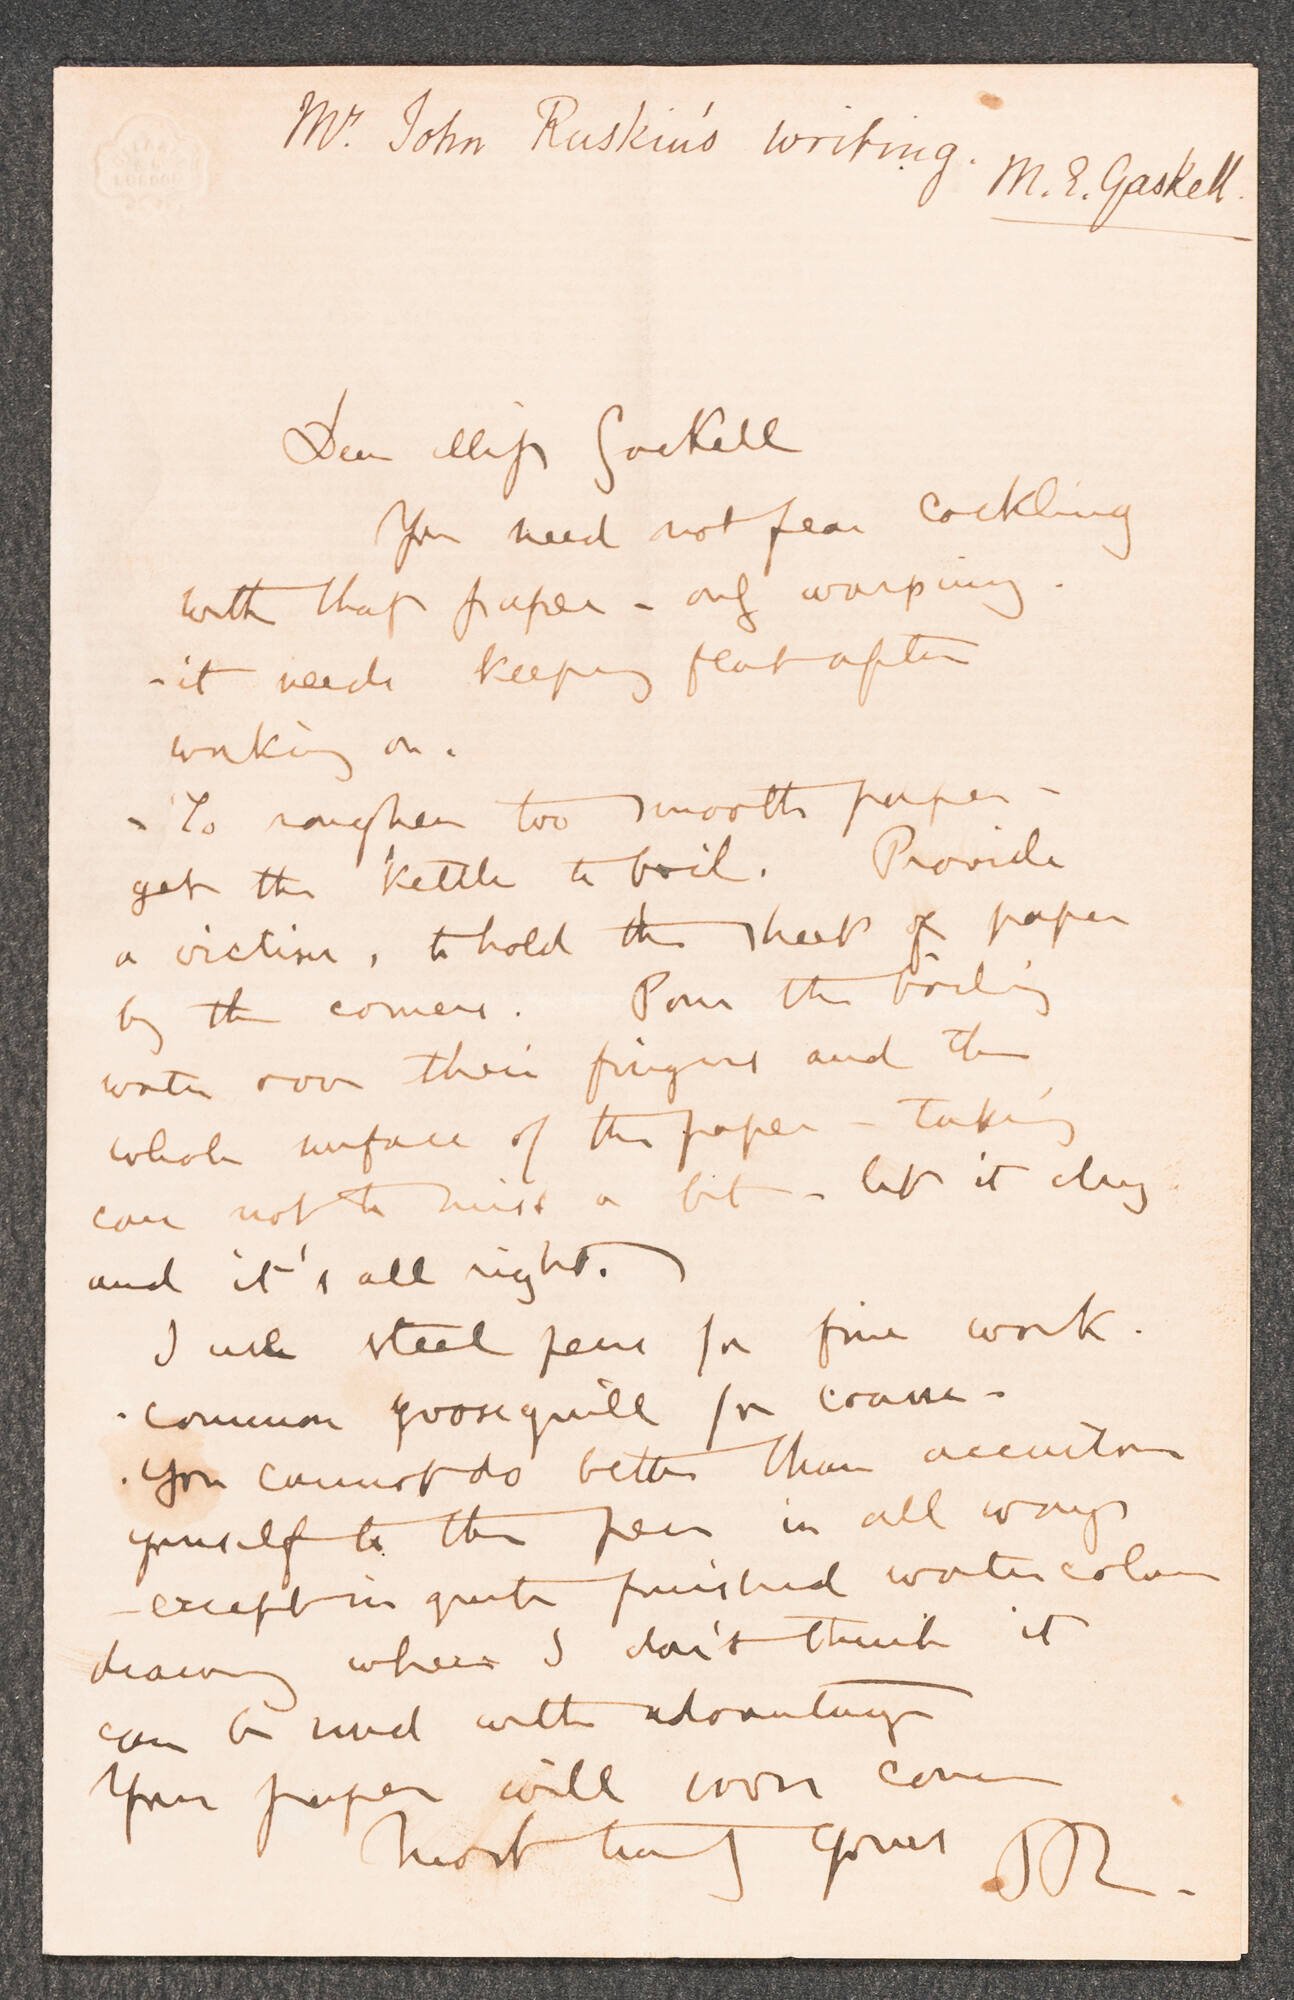 Mr. John Ruskin's writing.
M. E. Gaskell.
LONDON
Dear Miss Gaskell
You need not fear cockling
with that paper - only warping.
- it needs keeping flat after
working on.
- To roughen too smooth paper -
get the kettle to boil. Provide
a victim, to hold the sheet of paper
by the corners. Pour the boiling
water over their fingers and the
whole surface of the paper - taking
care not to miss a bit - let it dry
and it's all right.
I use steel pens for fine work.
- common goosequill for coarse -
- You cannot do better than accustom
yourself to the pen in all ways
- except in quite finished water colour
drawing where I don't think it
can be used with advantage
Your paper will soon come
Most truly yours JR -